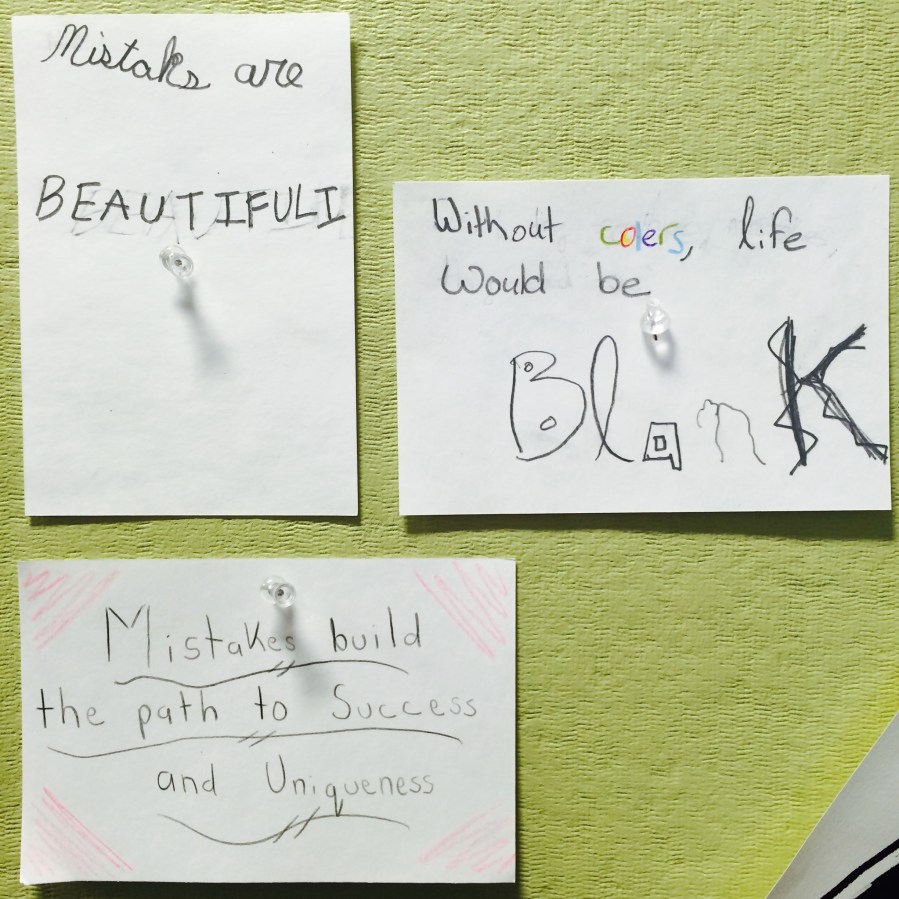 Mistaks are
BEAUTIFULI
Without colers, life
Would be
BlanK
Mistakes build
the path to Success
and Uniqueness